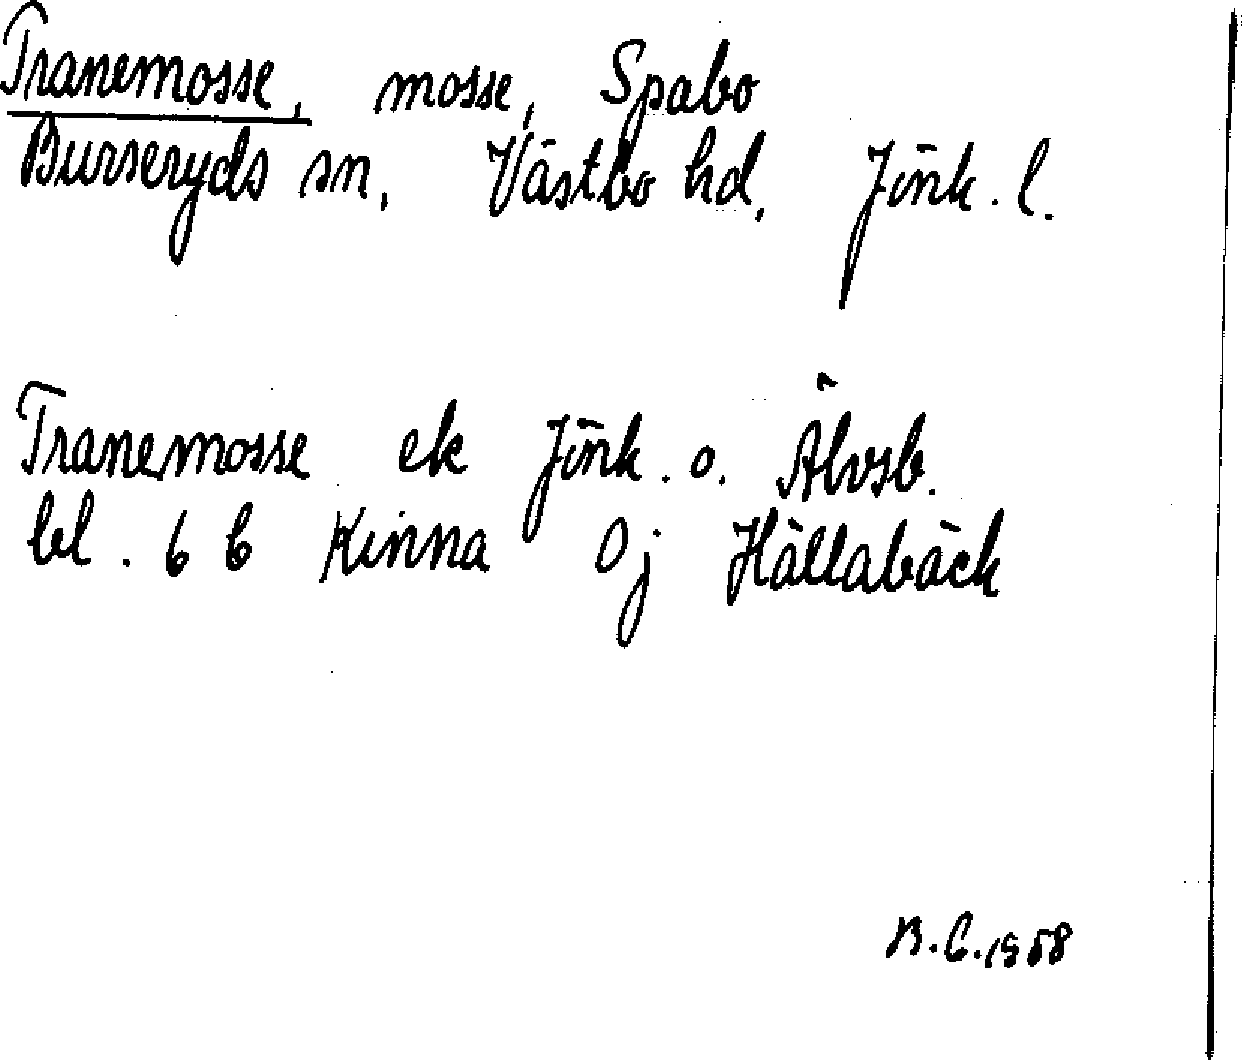 Tranemosse, mosse, Spabo
Burseryds sn, Västbo hd, Jönk. l.
Tranemosse ek Jönk. o. Älvsb.
bl. 6 b Kinna 0j Hällabäck
B.C.1958